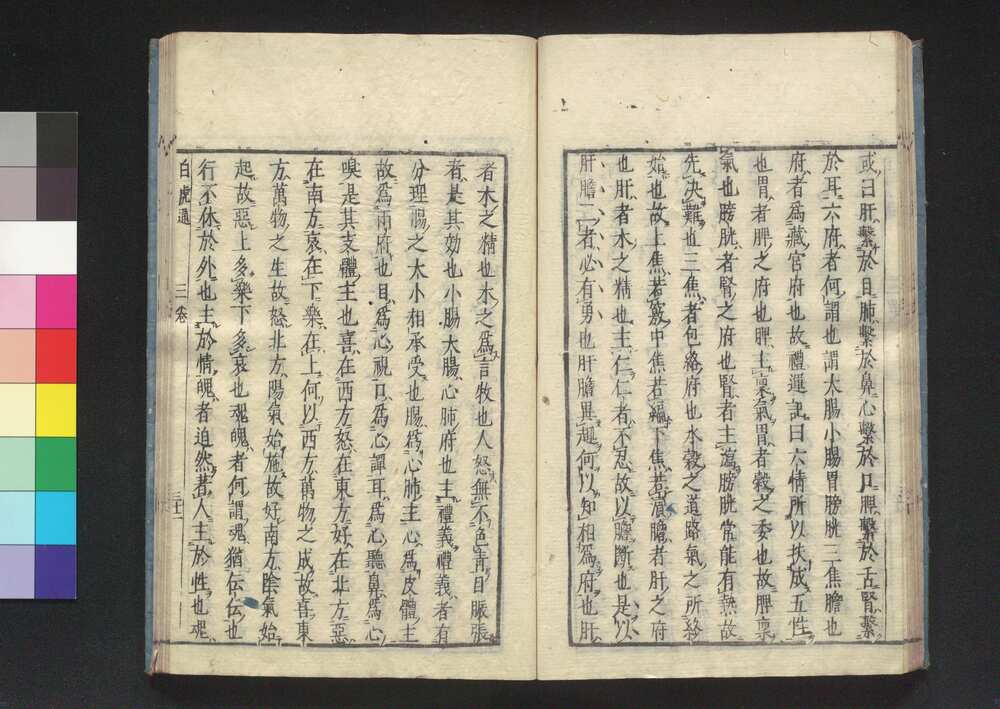 或曰肝繫於目肺繫於鼻心繫於口脾繫於舌腎繫
於耳六府者何謂也謂大腸小腸胃膀胱三焦膽也
府者爲藏宮府也故禮運記曰六情所以扶成五性
也胃者脾之府也脾主稟氣胃者穀之委也故脾稟
氣也膀胱者腎之府也腎者主瀉膀胱常能有熱故
先決難也三焦者包絡府也水穀之道路氣之所終
始也故上焦若竅中焦若編下焦若瀆膽者肝之府
也肝者木之精也主仁仁者不忍故以膽斷也是以
肝膽二者必有勇也肝膽異趣何以知相爲府也肝
者木之精也木之爲言牧也人怒無不色青目脤張
者是其効也小腸大腸心肺府也主禮義禮義者有
分理腸之大小相承受也腸爲心肺主心爲皮體主
故爲兩府也目爲心視口爲心譚耳爲心聽鼻爲心
嗅是其支體主也喜在西方怒在東方好在北方惡
在南方哀在下樂在上何以西方萬物之成故喜東
方萬物之生故怒北方陽氣始施故好南方陰氣始
起故惡上多樂下多哀也魂魄者何謂魂猶伝伝也
行不休於外也主於情魄者迫然著人主於性也魂
白虎通 三卷 三十一